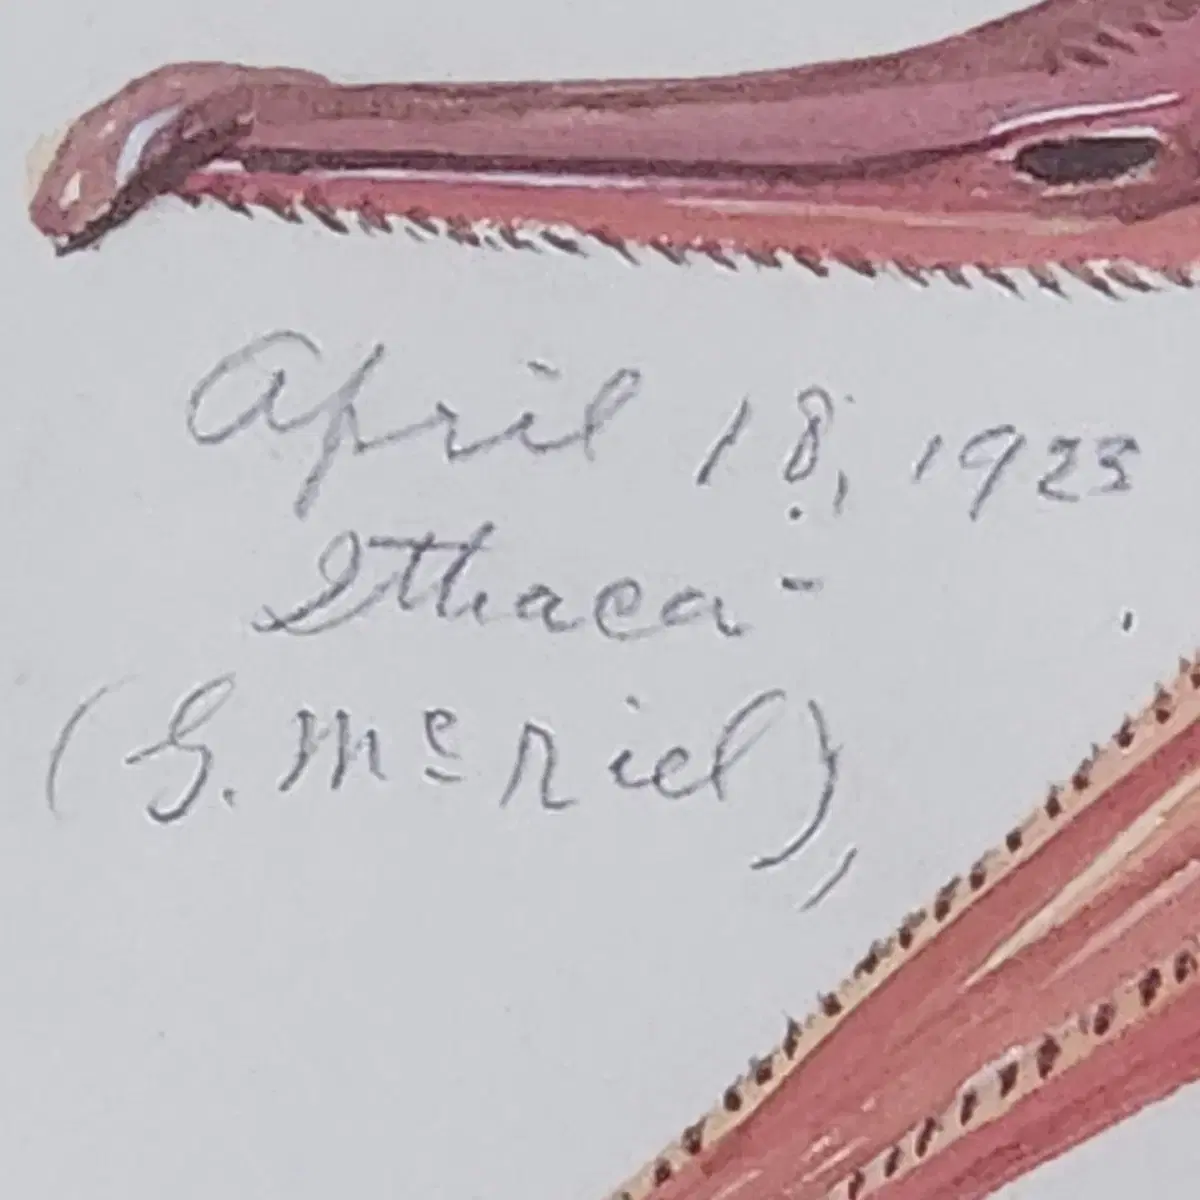 April 18, 1923
Ithaca -
(G. McNiel),